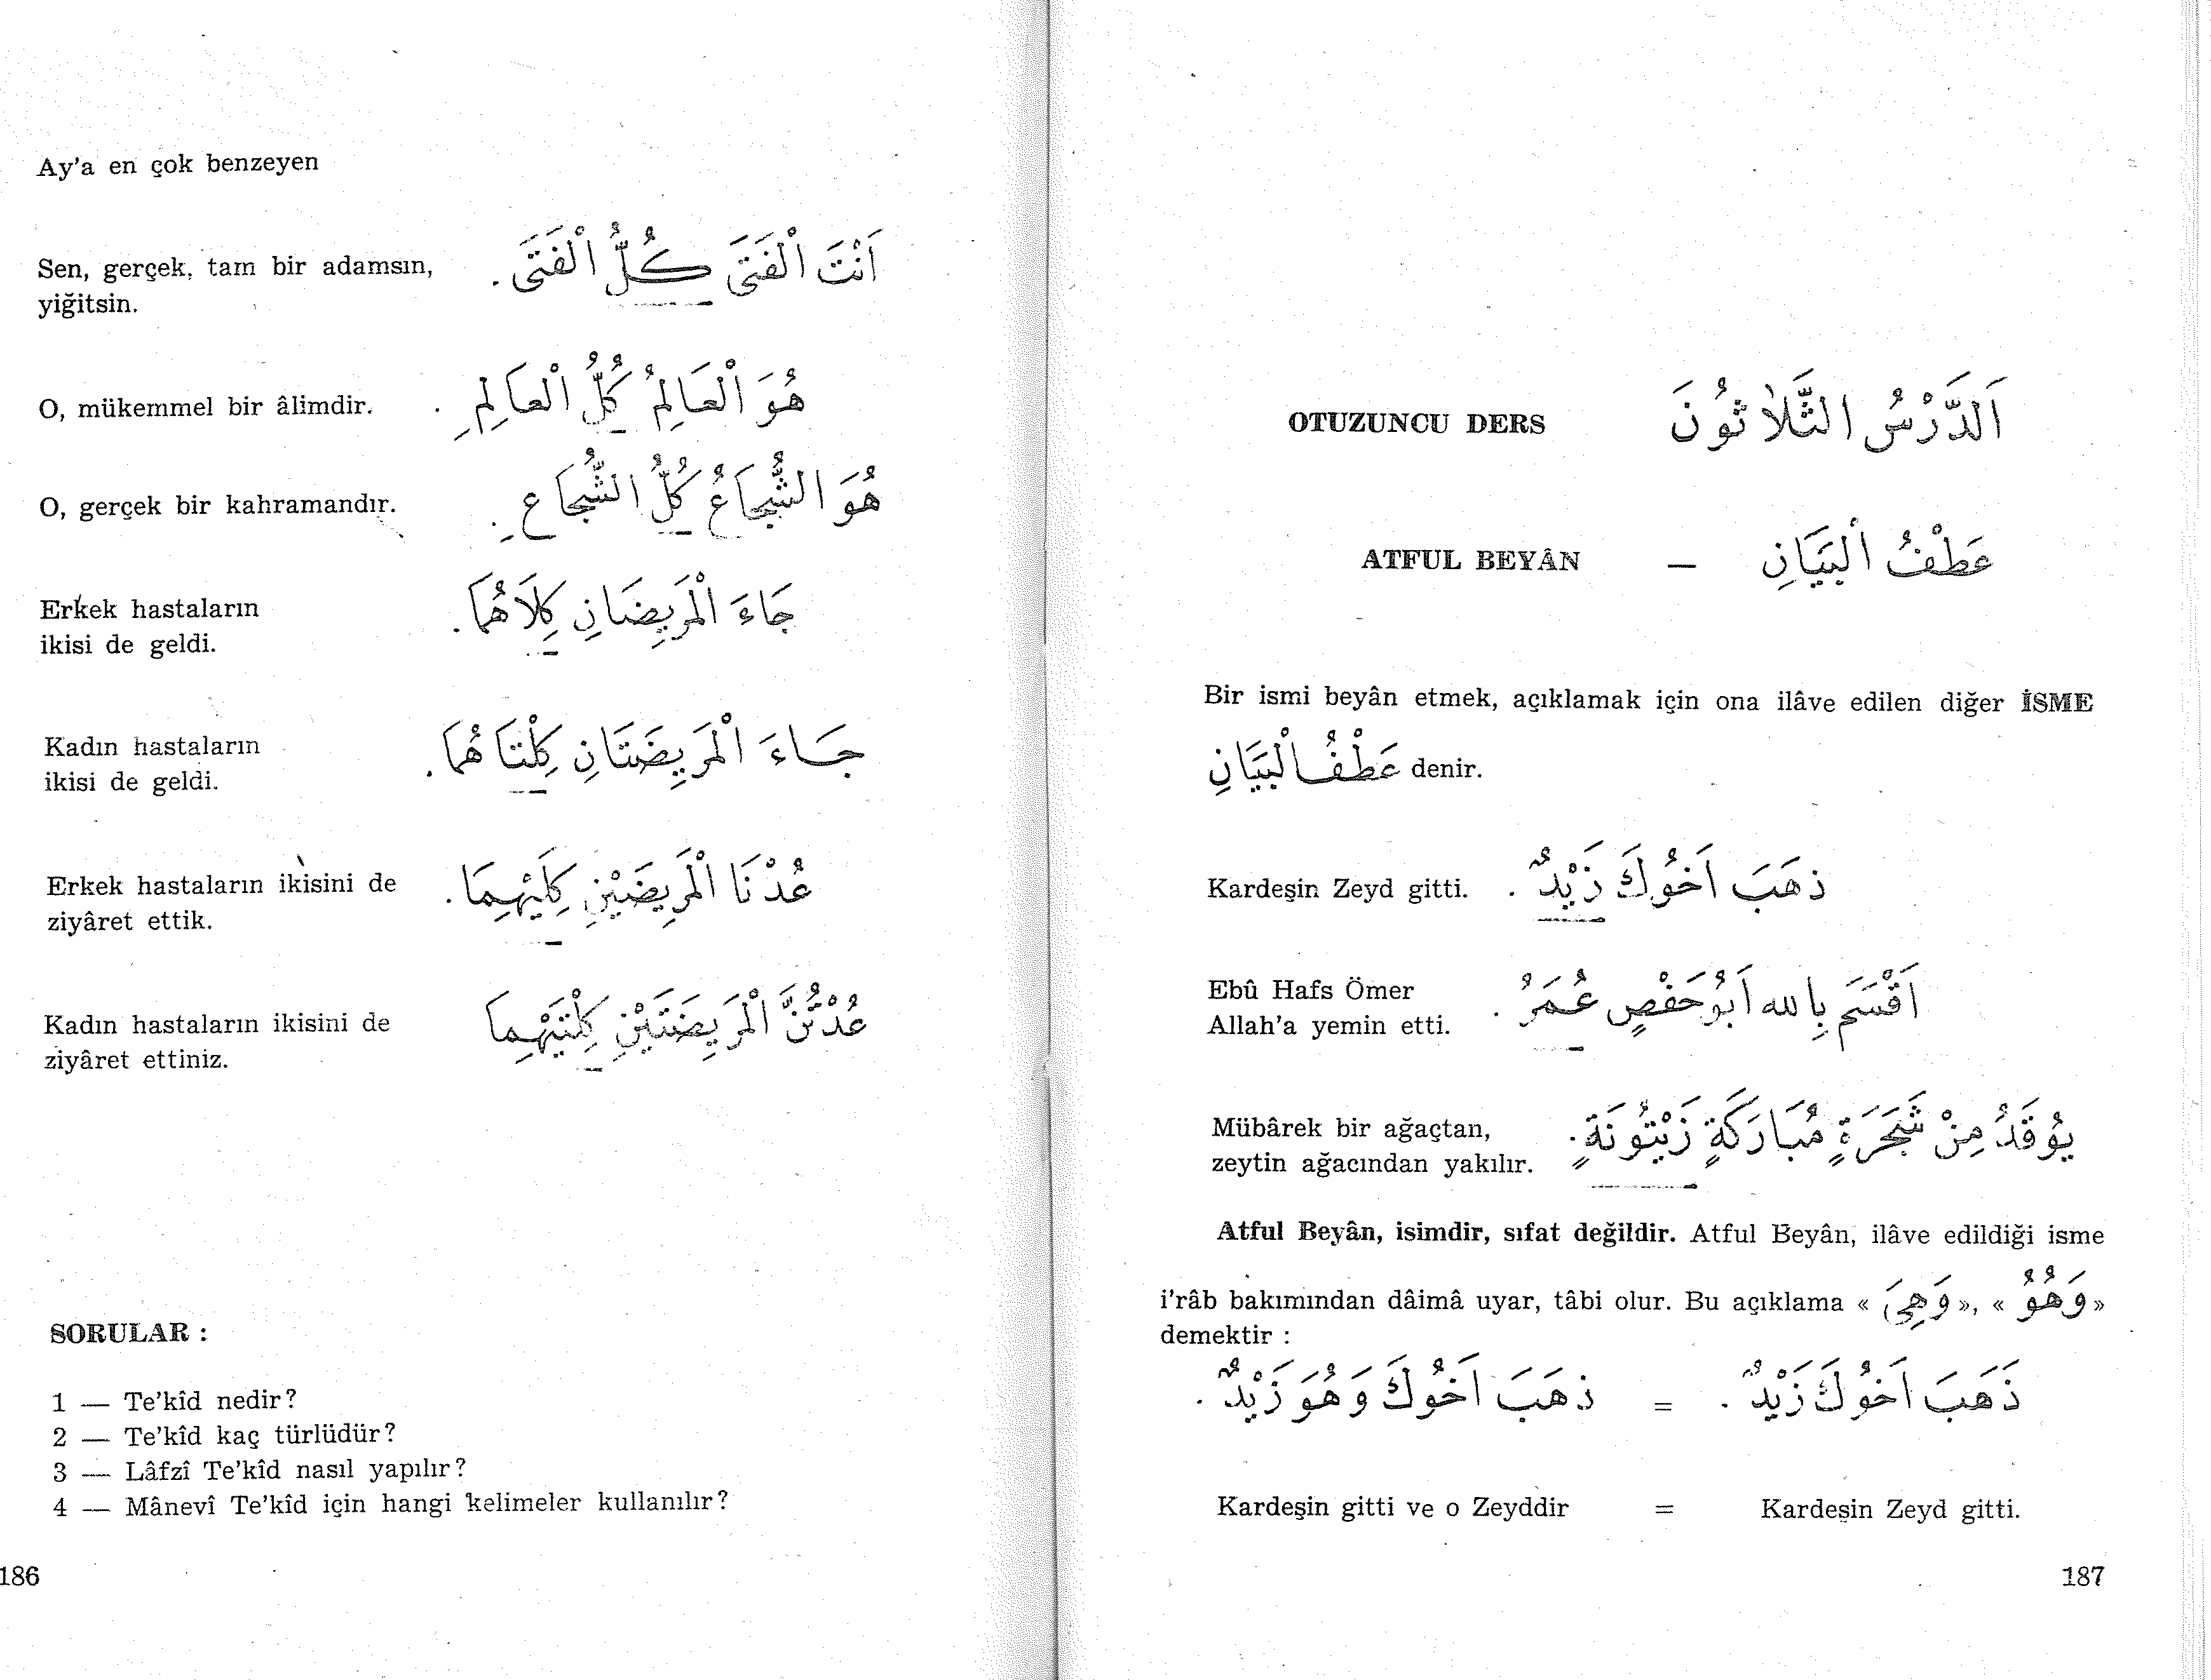 Ay'a en çok benzeyen
Sen, gerçek, tam bir adamsın, اَنْتَ الْفَتَى كُلُّ الْفَتَى .
yiğitsin.
O, mükemmel bir âlimdir. هُوَ الْعَالِمُ كُلُّ الْعَالِمِ .
O, gerçek bir kahramandır. هُوَ الشُّجَاعُ كُلُّ الشُّجَاعِ .
Erkek hastaların جَاءَ الْمَرِيضَانِ كِلَاهُمَا .
ikisi de geldi.
Kadın hastaların جَاءَ الْمَرِيضَتَانِ كِلْتَاهُمَا .
ikisi de geldi.
Erkek hastaların ikisini de عُدْنَا الْمَرِيضَيْنِ كِلَيْهِمَا .
ziyâret ettik.
Kadın hastaların ikisini de عُدْتُنَّ الْمَرِيضَتَيْنِ كِلْتَيْهِمَا
ziyâret ettiniz.
SORULAR :
1 — Te'kîd nedir?
2 — Te'kîd kaç türlüdür?
3 — Lâfzî Te'kîd nasıl yapılır?
4 — Mânevî Te'kîd için hangi kelimeler kullanılır?
186
OTUZUNCU DERS اَلدَّرْسُ الثَّلَاثُونَ
ATFUL BEYÂN — عَطْفُ الْبَيَانِ
Bir ismi beyân etmek, açıklamak için ona ilâve edilen diğer İSME
عَطْفُ الْبَيَانِ denir.
Kardeşin Zeyd gitti. ذهَبَ اَخُوكَ زَيْدٌ .
Ebû Hafs Ömer اَقْسَمَ بِالله اَبُو حَفْصٍ عُمَرُ .
Allah'a yemin etti.
Mübârek bir ağaçtan, يُوقَدُ مِنْ شَجَرَةٍ مُبَارَكَةٍ زَيْتُونَةٍ .
zeytin ağacından yakılır.
Atful Beyân, isimdir, sıfat değildir. Atful Beyân, ilâve edildiği isme
i'râb bakımından dâimâ uyar, tâbi olur. Bu açıklama « وَهِيَ », « وَهُوَ »
demektir :
ذَهَبَ اَخُوكَ زَيْدٌ . = ذهَبَ اَخُوكَ وَهُوَ زَيْدٌ .
Kardeşin gitti ve o Zeyddir = Kardeşin Zeyd gitti.
187